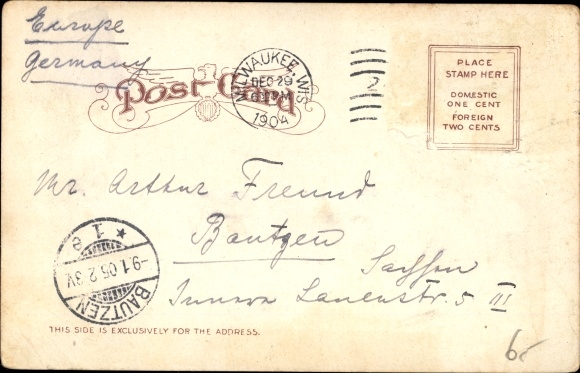 Europe
Germany
Post Card
MILWAUKEE, WIS.
DEC 29
1904
PLACE
STAMP HERE
DOMESTIC
ONE CENT
FOREIGN
TWO CENTS
Mr. Arthur Freund
Bautzen
Sachsen
Innere Lauenstr. 5 III
* 1 e
-9.1.05.2-3V.
BAUTZEN
THIS SIDE IS EXCLUSIVELY FOR THE ADDRESS.